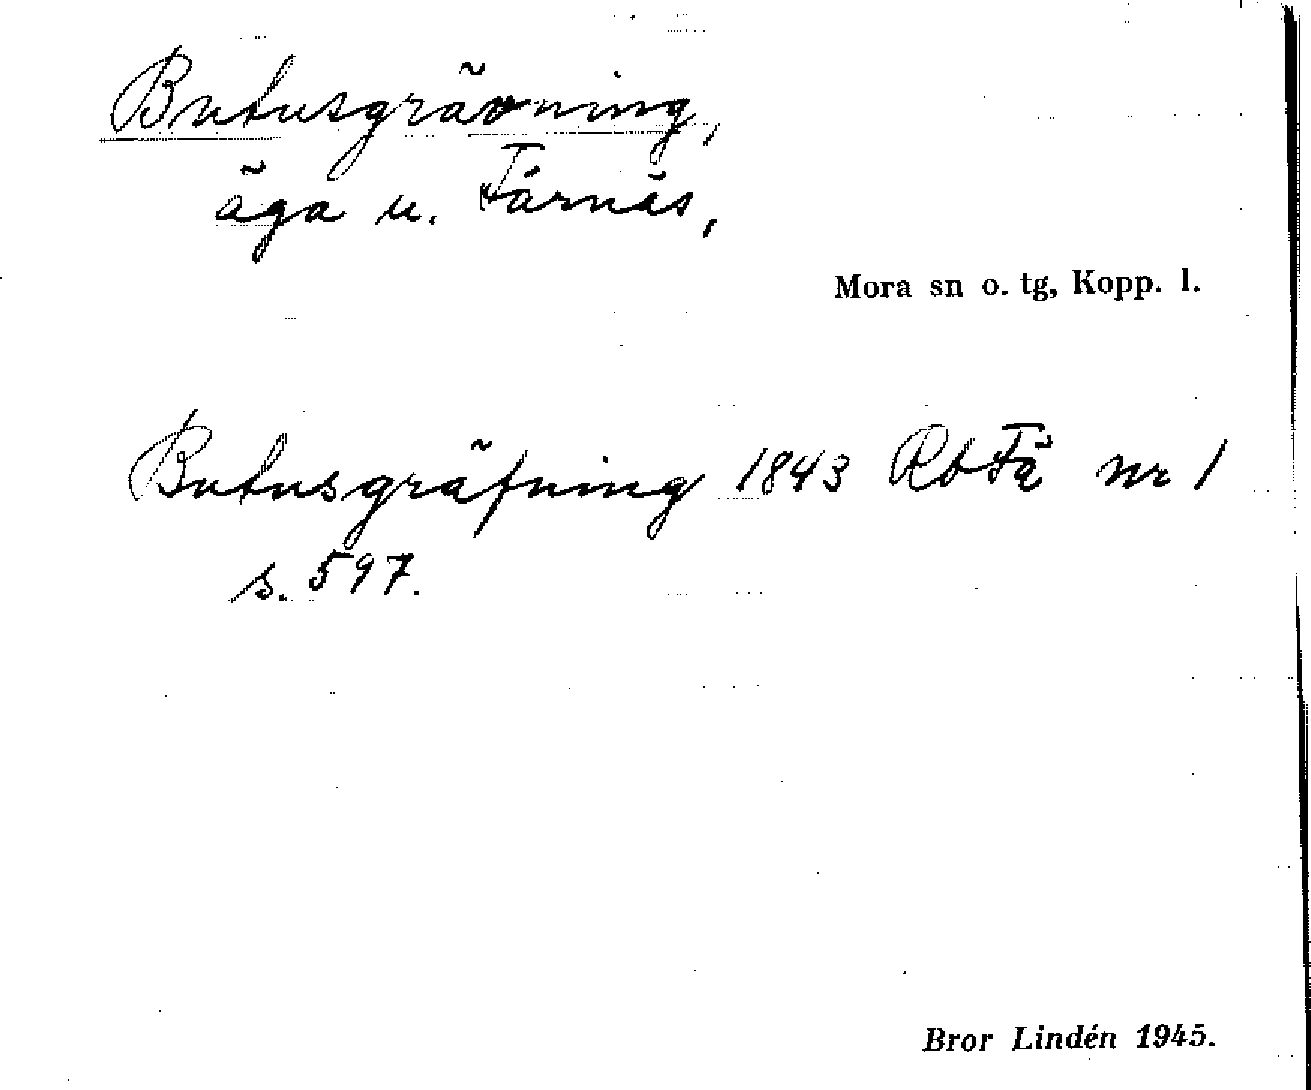 Butusgrävning,
äga u. Färnäs,
Mora sn o. tg, Kopp. l.
Butusgräfning 1843 RbFä nr 1
s. 597.
Bror Lindén 1945.